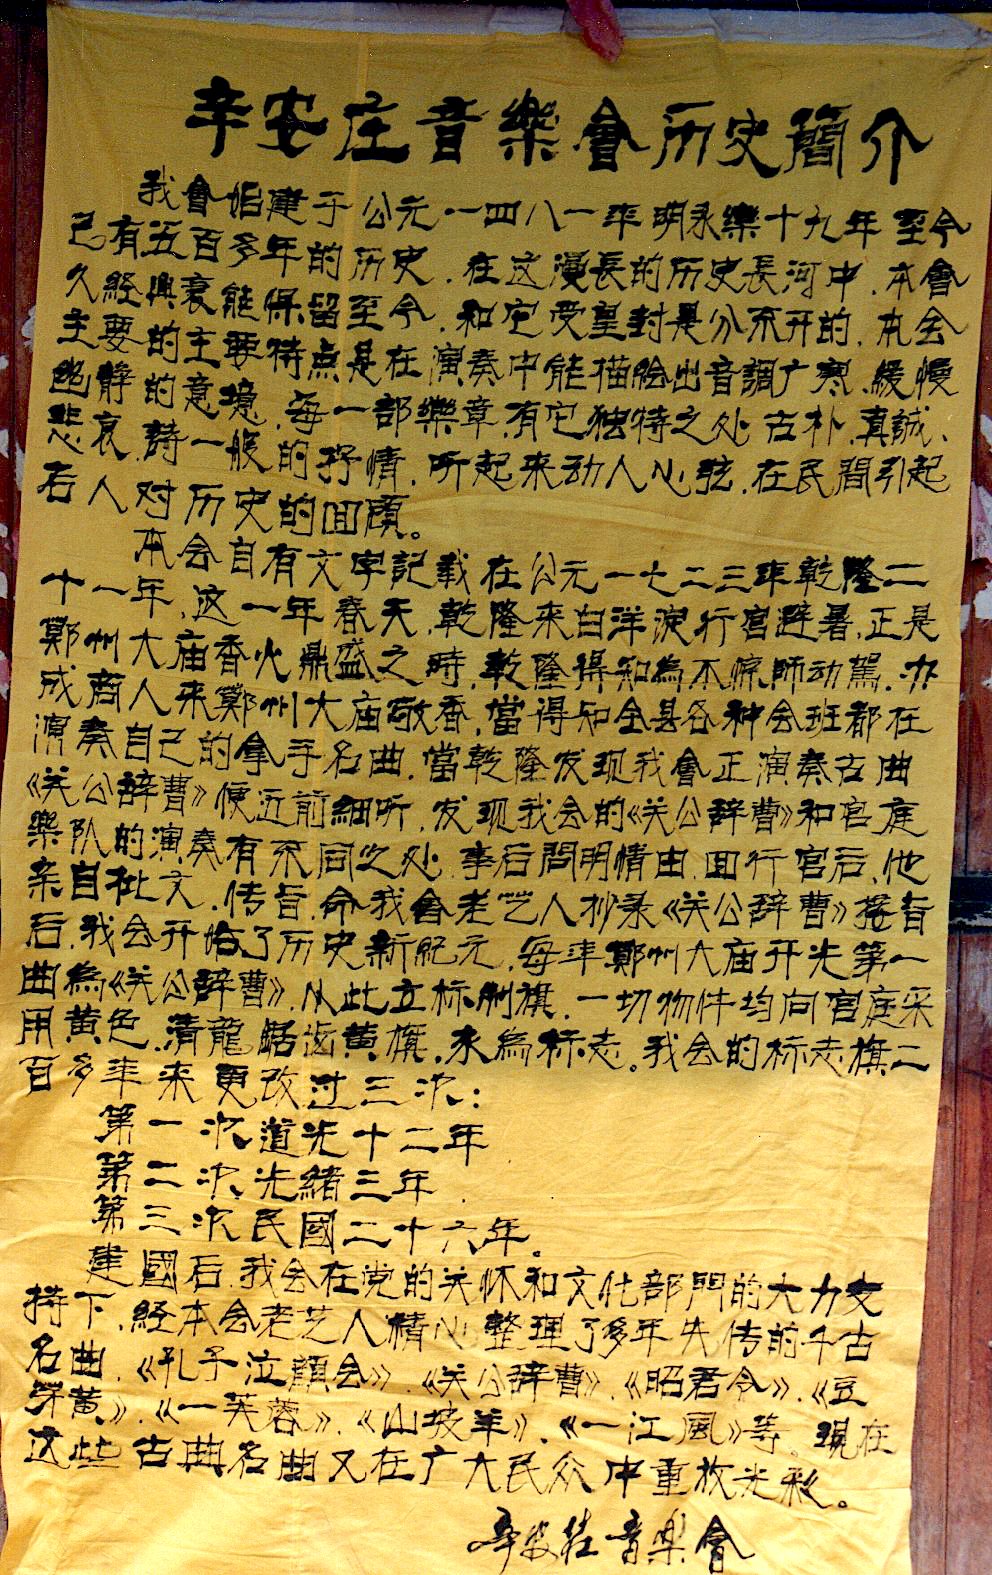 辛安庄音樂會历史簡介
我會始建于公元一四八一年明永樂十九年至今
己有五百多年的历史.在这漫長的历史長河中.本會
久經興衰能保留至今.和它受皇封是分不开的.本会
主要的主要特点是在演奏中能描绘出音調广寒.緩慢
幽静的意境.每一部樂章.有它独特之处古朴.真誠、
悲哀.詩一般的抒情.听起来动人心弦.在民間引起
后人对历史的回顧。
本会自有文字記载在公元一七二三年乾隆二
十一年.这一年春天.乾隆来白洋淀行宫避暑.正是
鄭州大庙香火鼎盛之時.乾隆得知為不惊師动駕.办
成商人来鄭州大庙敬香.當得知全县各种会班都在
演奏自己的拿手名曲.當乾隆发现我會正演奏古曲
《关公辞曹》便近前細听.发现我会的《关公辞曹》和宫庭
樂队的演奏有不同之处.事后問明情由.回行宫后.他
亲自批文.传旨.命我會老艺人抄录《关公辞曹》接旨
后.我会开始了历史新紀元.每年鄭州大庙开光第一
曲為《关公辞曹》.从此立标制旗.一切物件均向宫庭采
用黄色.清龍踞齿黄旗.永為标志。我会的标志旗二
百多年来更改过三次:
第一次道光十二年
第二次光緒三年.
第三次民國二十六年。
建國后.我会在党的关怀和文化部門的大力支
持下.経本会老艺人精心整理了多年失传的千古
名曲.《孔子泣顏会》.《关公辞曹》.《昭君令》.《豆
芽黄》.《一芙蓉》.《山坡羊》.《一江風》等。現在
这些古典名曲又在广大民众中重放光彩。
辛安莊音樂會